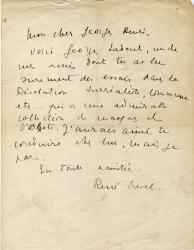 Mon cher George Henri,
voici George Sadoul, un de
mes amis dont tu as lu
surement des essais dans la
Révolution surréaliste, Commune
etc.. qui a une admirable
collection de masques et
d'objets. J'aurais aimé te
conduire chez lui, mais je
pars.
En toute amitié.
René Crevel.